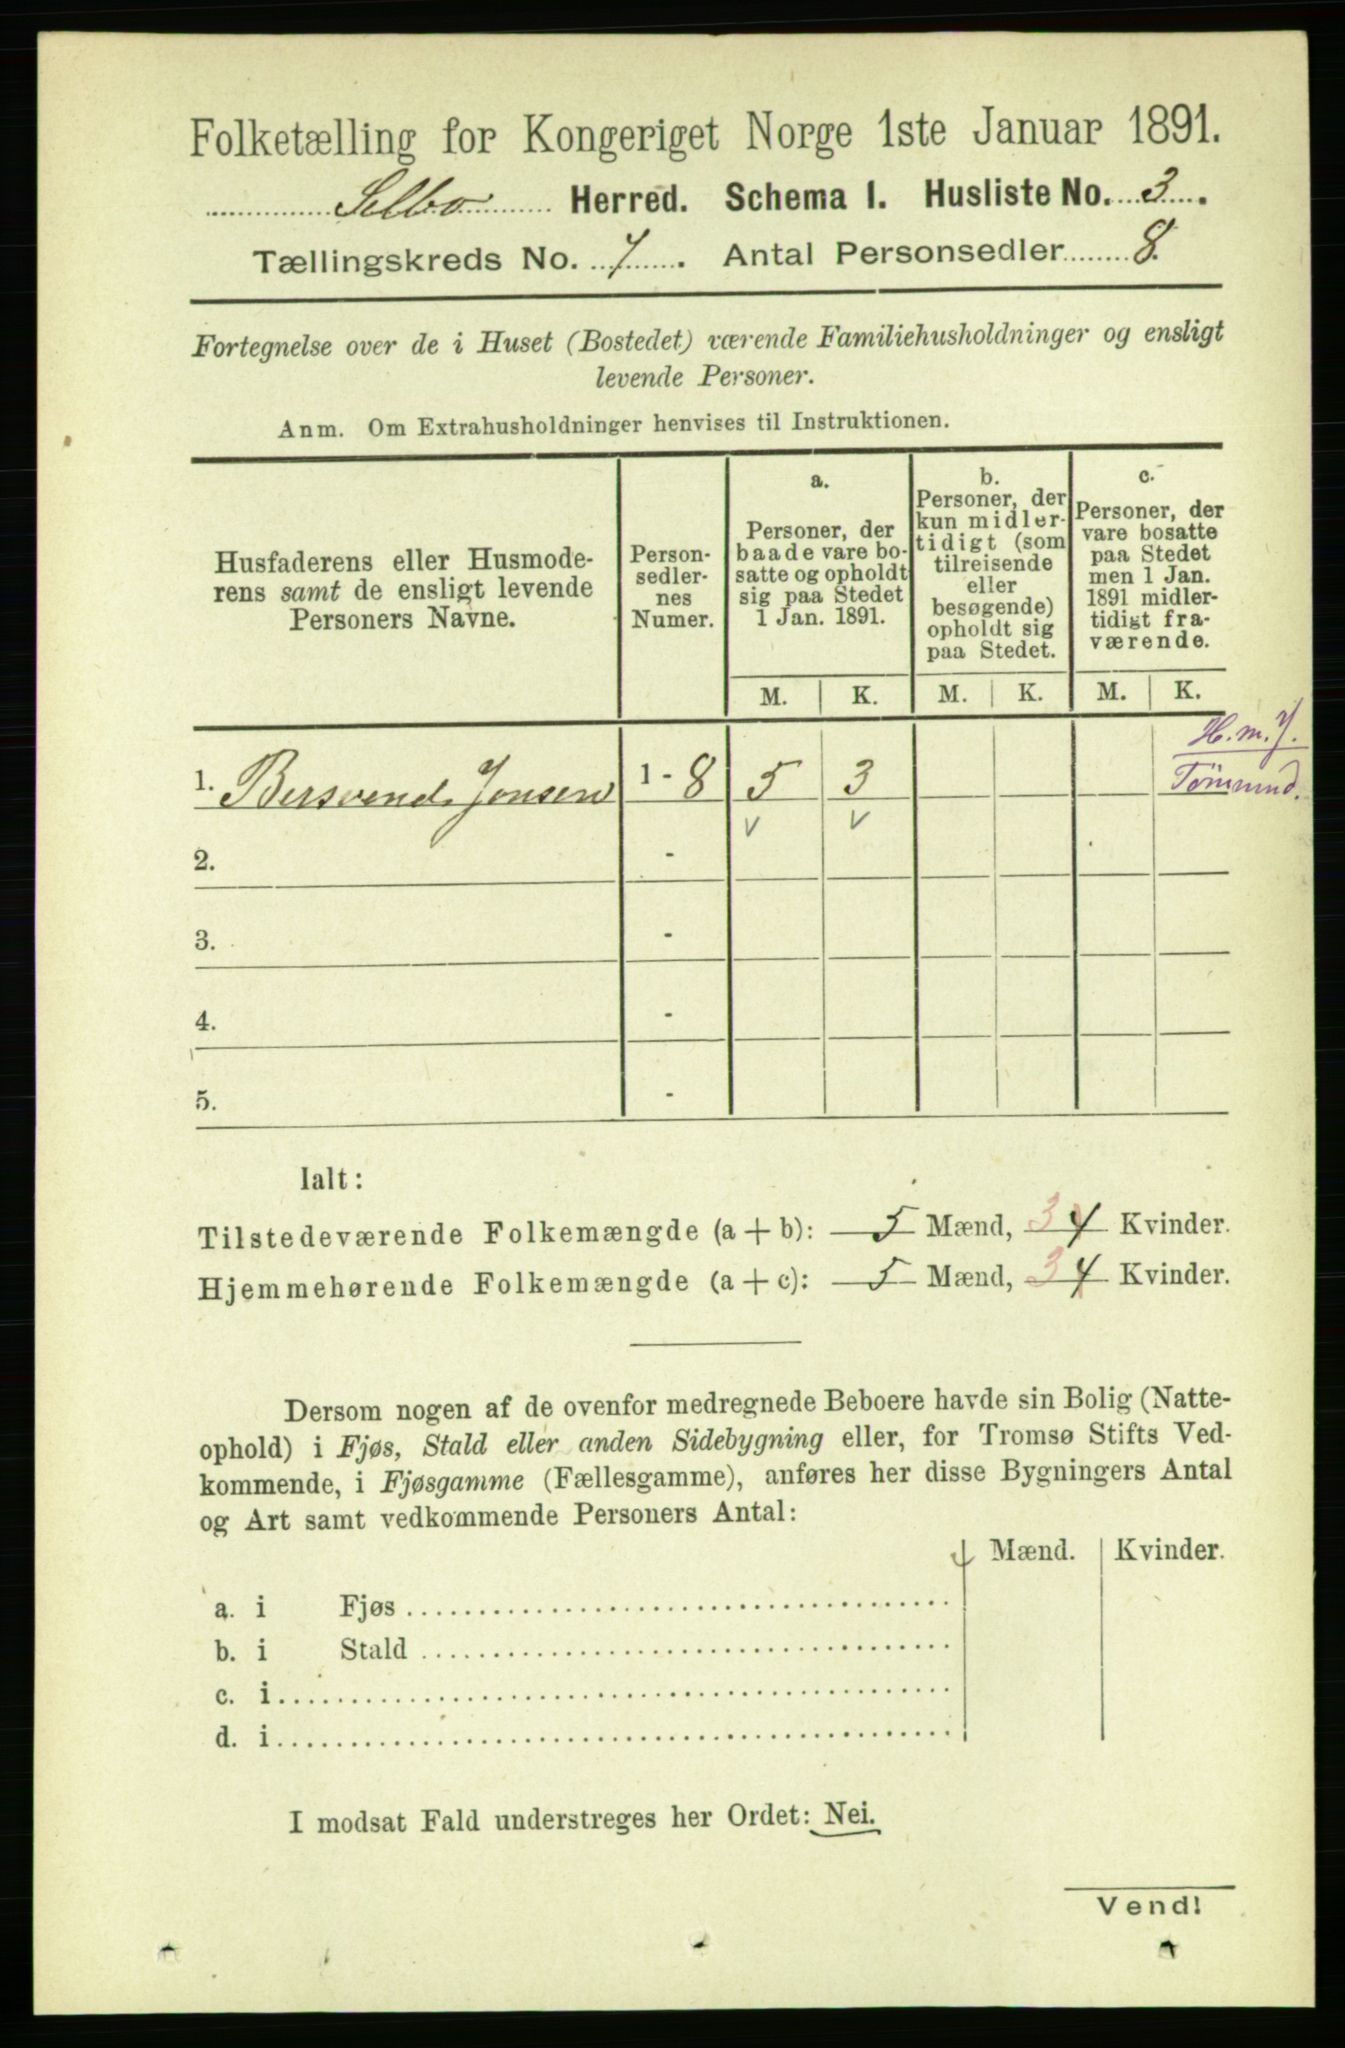 Folketælling for Kongeriget Norge 1ste Januar 1891.
Selbo Herred. Schema I. Husliste No. 3.
Tællingskreds No. 7. Antal Personsedler 8.
Fortegnelse over de i Huset (Bostedet) værende Familiehusholdninger og ensligt
levende Personer.
Anm. Om Extrahusholdninger henvises til Instruktionen.
Husfaderens eller Husmode-
rens samt de ensligt levende
Personers Navne.
Person-
sedler-
nes
Numer.
a.
Personer, der
baade vare bo-
satte og opholdt
sig paa Stedet
1 Jan. 1891.
b.
Personer, der
kun midler-
tidigt (som
tilreisende
eller
besøgende)
opholdt sig
paa Stedet.
c.
Personer, der
vare bosatte
paa Stedet
men 1 Jan.
1891 midler-
tidigt fra-
værende.
M. K. M. K. M. K.
H. m. 7.
1. Bersvend Jonsen 1 - 8 5 3
2. -
3. -
4. -
5. -
Ialt:
Tilstedeværende Folkemængde (a + b): 5 Mænd, 3 4 Kvinder.
Hjemmehørende Folkemængde (a + c): 5 Mænd, 3 4 Kvinder.
Dersom nogen af de ovenfor medregnede Beboere havde sin Bolig (Natte-
ophold) i Fjøs, Stald eller anden Sidebygning eller, for Tromsø Stifts Ved-
kommende, i Fjøsgamme (Fællesgamme), anføres her disse Bygningers Antal
og Art samt vedkommende Personers Antal:
Mænd. Kvinder.
a. i Fjøs
b. i Stald
c. i
d. i
I modsat Fald understreges her Ordet: Nei.
Vend!